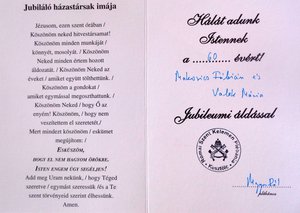 Jubiláló házastársak imája
Jézusom, ezen szent órában /
Köszönöm neked hitvestársamat!
Köszönöm minden munkáját /
könnyét, mosolyát, /
Köszönöm Neked minden értem hozott
áldozatát. / Köszönöm Neked az
éveket / amiket együtt töltöttünk. /
Köszönöm a gondokat /
amiket egymással megoszthattunk. /
Köszönöm Neked / hogy Ő az
enyém! Köszönöm, / hogy nem
veszítettem el szeretetét. /
Mert mindezt köszönöm / eskümet
megújítom: /
ESKÜSZÖM,
HOGY EL NEM HAGYOM ÖRÖKRE.
ISTEN ENGEM ÚGY SEGÉLJEN!
Add meg Uram nekünk, / hogy Téged
szeretve / egymást szeressük és a Te
szent törvényeid szerint élhessünk.
Amen.
Hálát adunk
Istennek
a 60 évért!
Makovics Fábián és
Valek Mária
Jubileumi áldással
Római Szent Kelemen Plébánia